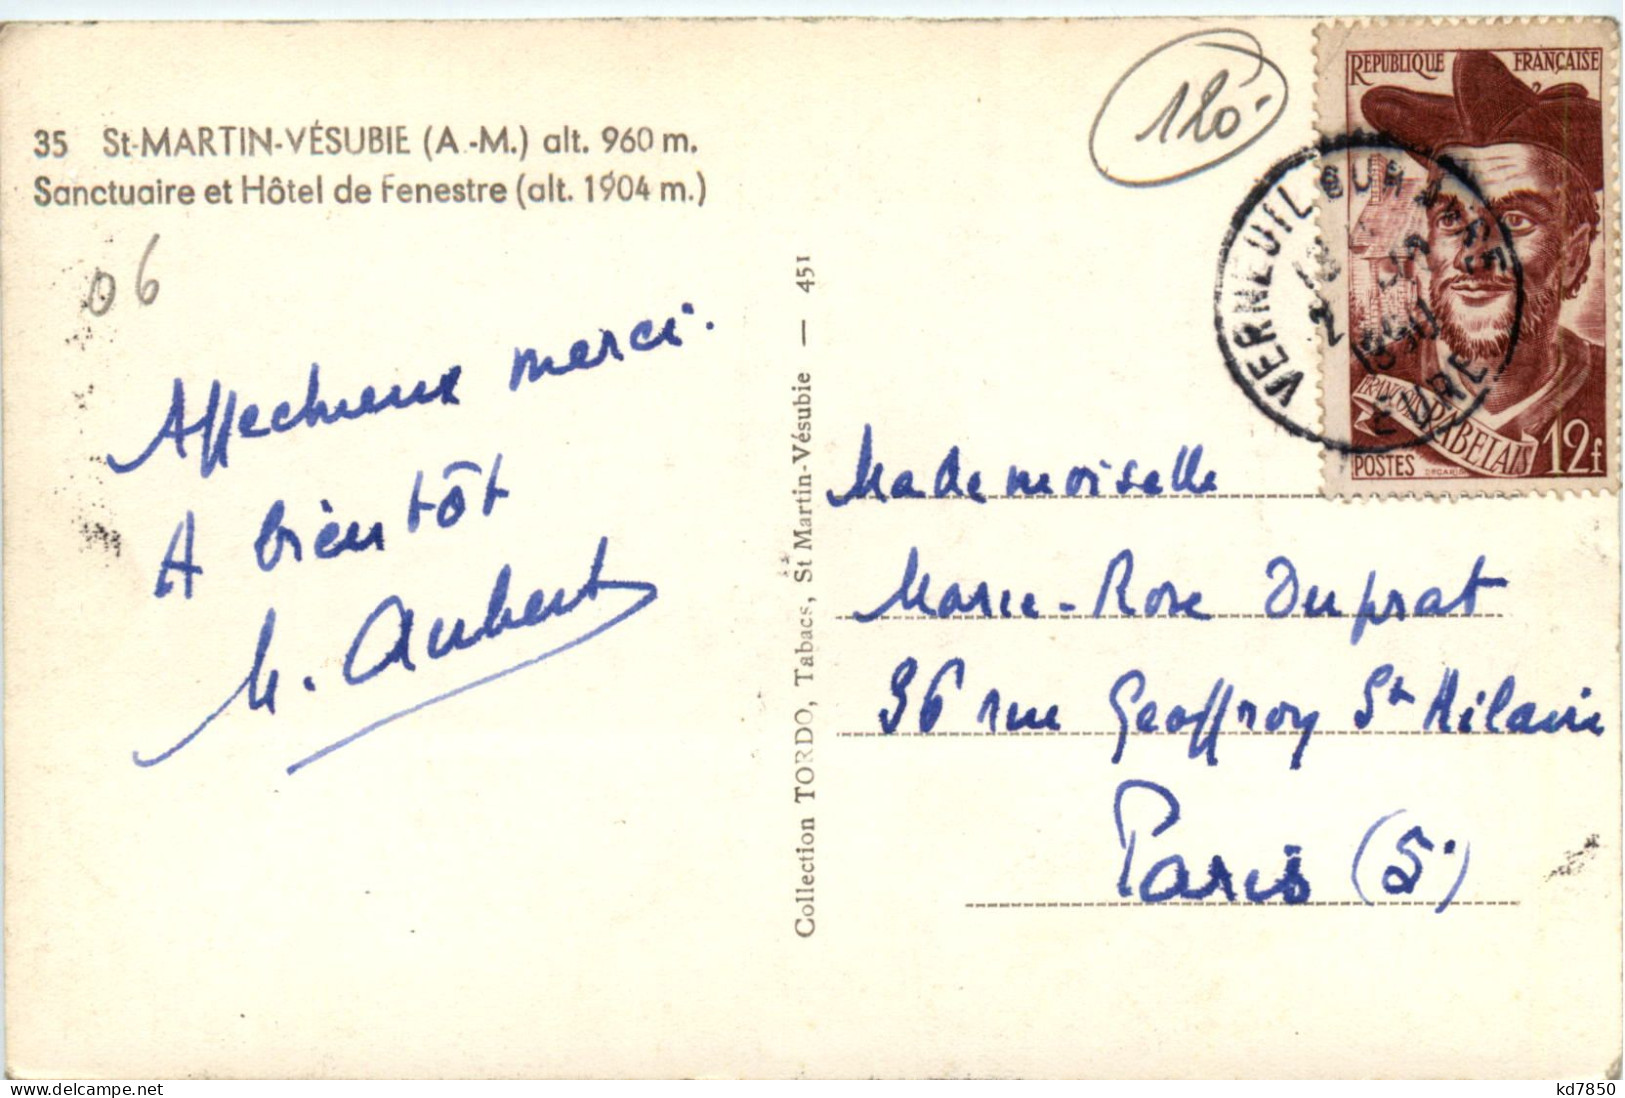 35 St-MARTIN-VÉSUBIE (A.-M.) alt. 960 m.
Sanctuaire et Hôtel de Fenestre (alt. 1904 m.)
06
Affectueux merci.
A bientôt
M. Aubert
Collection TORDO, Tabacs, St Martin-Vésubie — 451
120.-
REPUBLIQUE FRANÇAISE
FRANÇOIS RABELAIS
POSTES 12f
VERNEUIL
EURE
Mademoiselle
Marie-Rose Duprat
36 rue Geoffroy St Hilaire
Paris (5e)
delcampe.net
kd7850